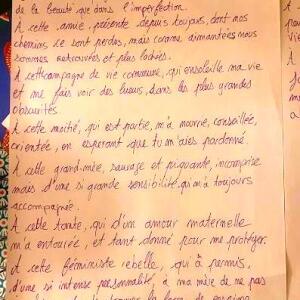 de la beauté que dans l'imperfection.
A cette amie, présente depuis toujours, dont nos
chemins se sont perdus, mais comme aimantées nous
sommes retrouvées et plus lâchées.
A cette compagne de vie coureuse, qui ensoleille ma vie
et me fais voir des lueurs dans les plus grandes
obscurités.
A cette moitié, qui est partie, m'a nourrie, conseillée,
orientée, en esperant que tu m'aies pardonné.
A cette grand-mère, sauvage et piquante, incomprise
mais d'une si grande sensibilité qui m'a toujours
accompagnée.
A cette tante, qui d'un amour maternelle
m'a entourée, et tant donné pour me protéger.
A cette féministe rebelle, qui a permis,
d'une si intense personnalité, à ma mère de ne pas
la façon de